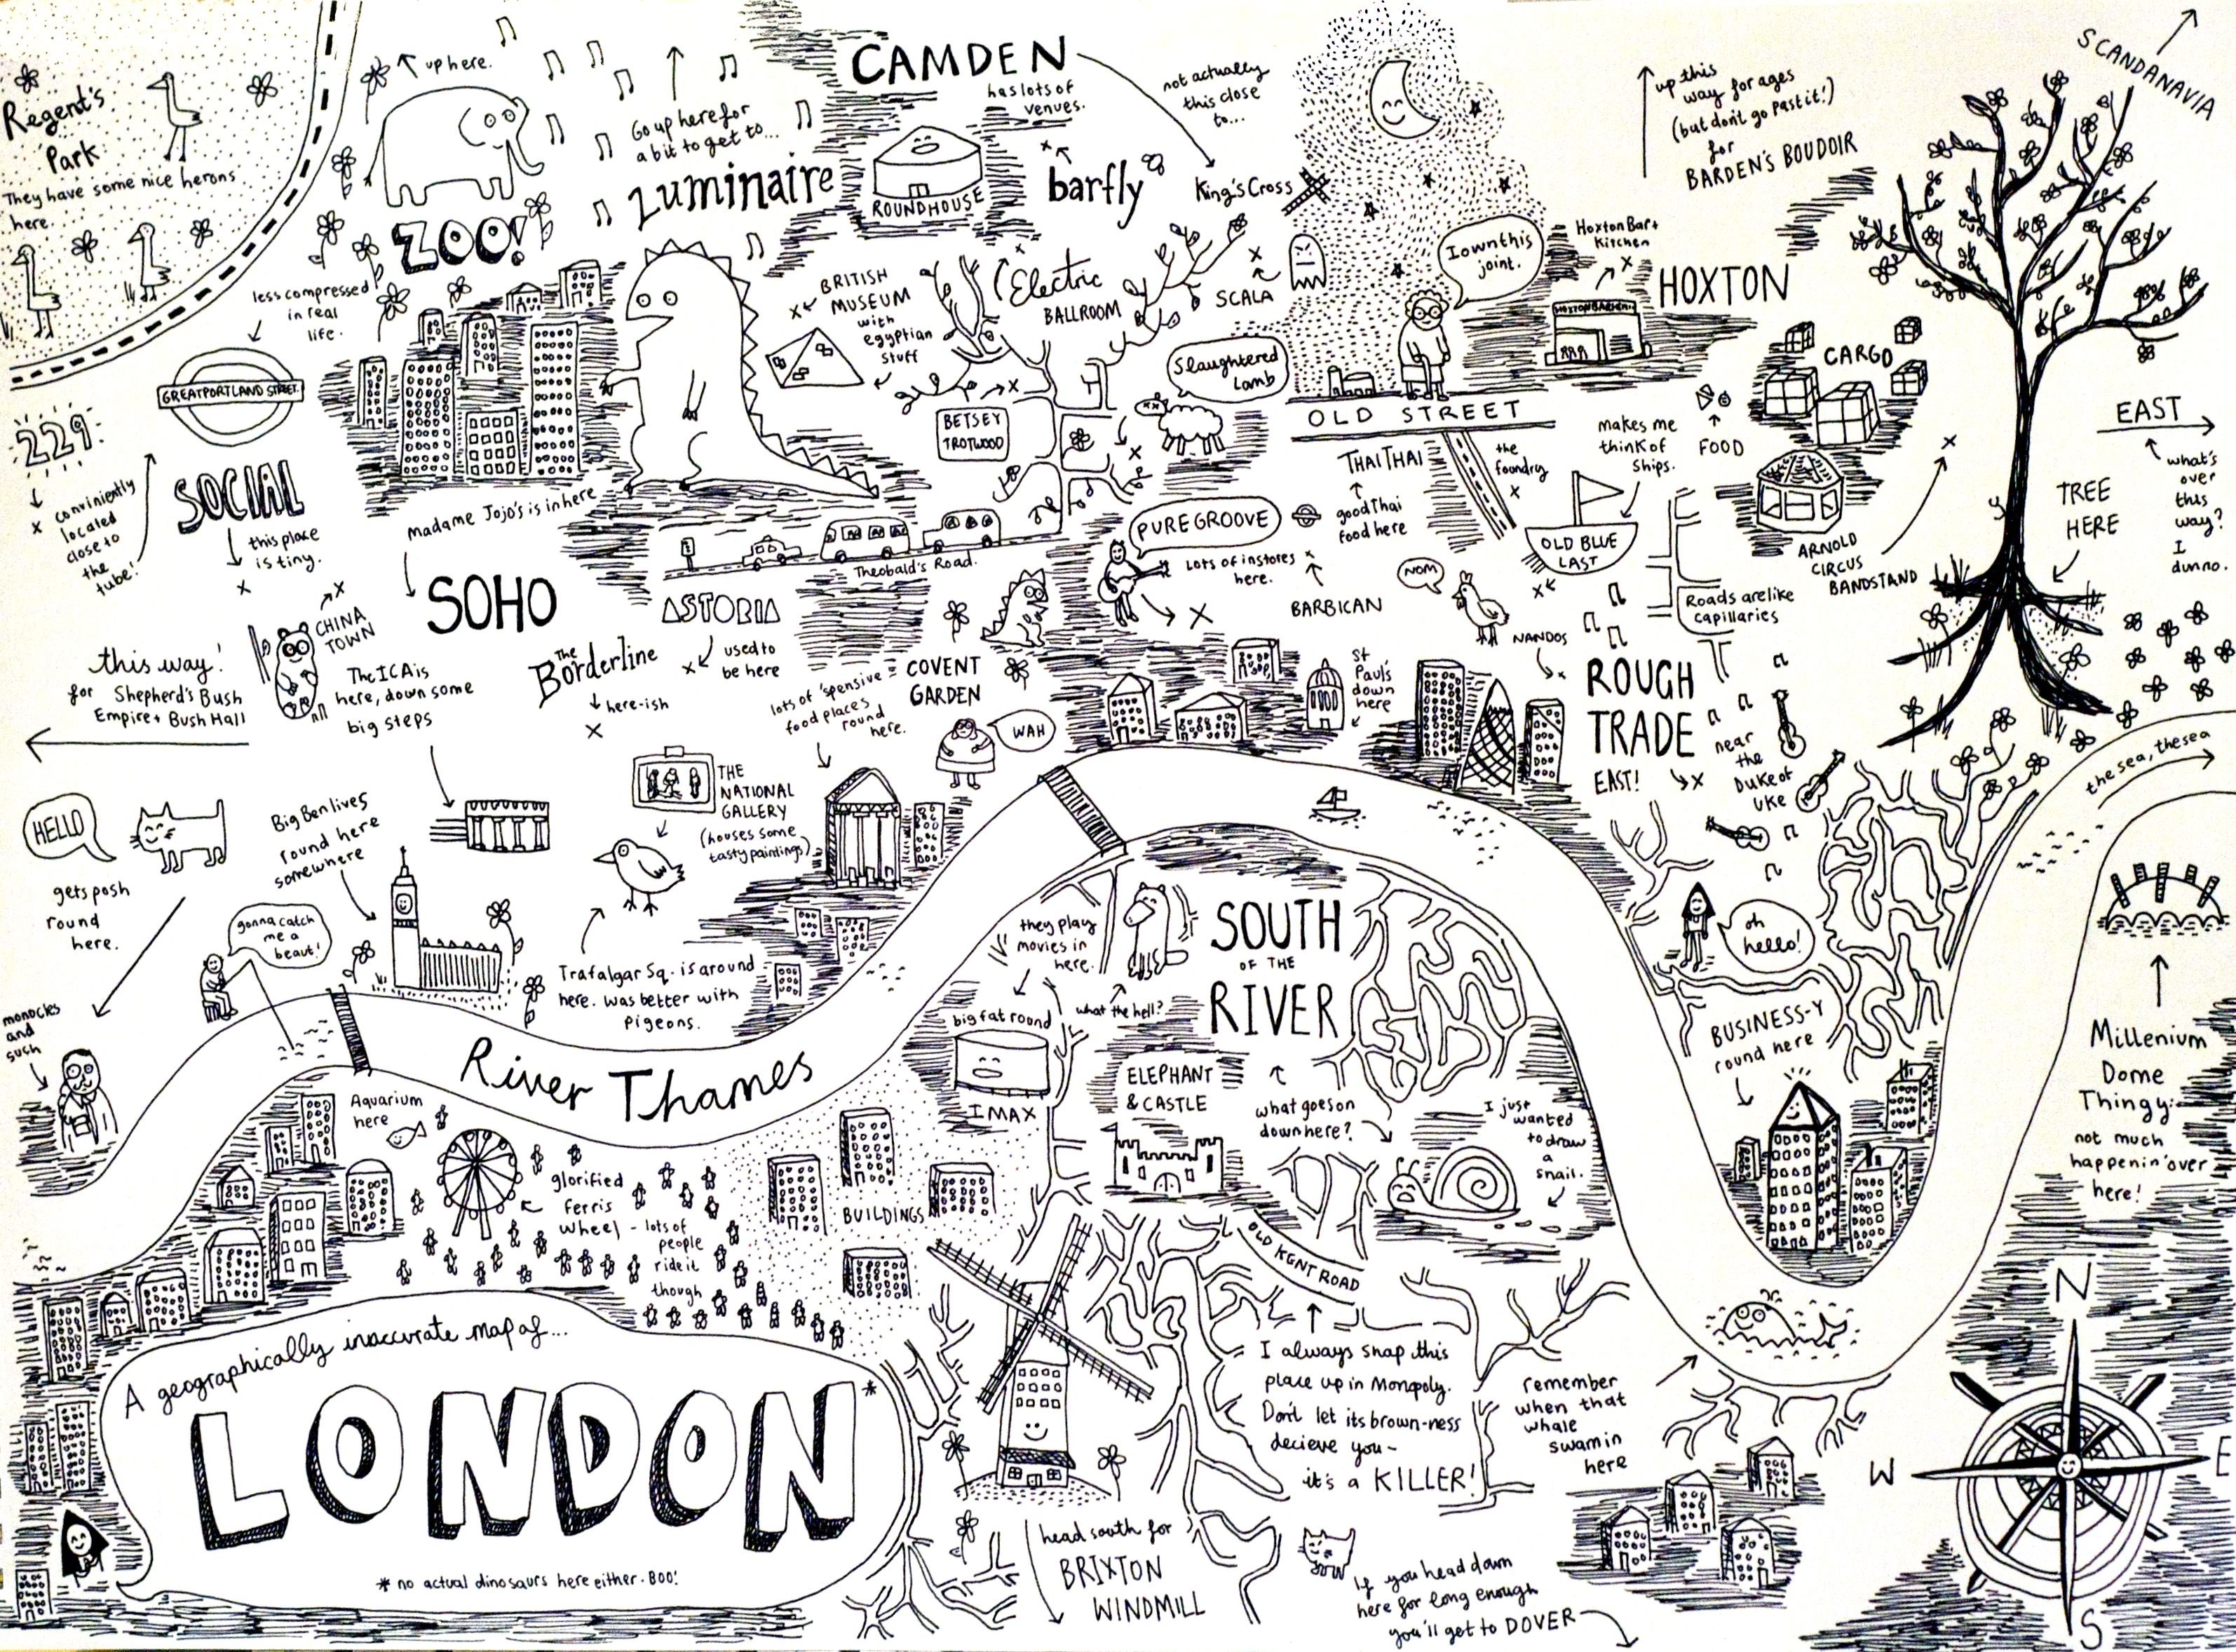 Regent's
Park
They have some nice herons
here.
up here.
ZOO!
Go up here for
a bit to get to...
Luminaire
CAMDEN
has lots of
venues.
ROUNDHOUSE
barfly
not actually
this close
to...
King's Cross
up this
way for ages
(but don't go past it!)
for
BARDEN'S BOUDOIR
SCANDANAVIA
less compressed
in real
life.
GREAT PORTLAND STREET
229
conviniently
located
close to
the
tube!
SOCIAL
this place
is tiny.
BRITISH
MUSEUM
with
egyptian
stuff
Electric
BALLROOM
SCALA
I own this
joint.
Hoxton Bar +
Kitchen
HOXTON BAR + KI
HOXTON
CARGO
Slaughtered
Lamb
BETSEY
TROTWOOD
OLD STREET
THAI THAI
good Thai
food here
the
foundry
makes me
think of
ships.
FOOD
OLD BLUE
LAST
ARNOLD
CIRCUS
BANDSTAND
EAST
what's
over
this
way?
I
dunno.
TREE
HERE
Madame Jojo's is in here
SOHO
Theobald's Road.
ASTORIA
used to
be here
The
Borderline
here-ish
PURE GROOVE
lots of instores
here.
BARBICAN
NOM
NANDOS
Roads are like
capillaries
CHINA
TOWN
this way!
for Shepherd's Bush
Empire + Bush Hall
The ICA is
here, down some
big steps
lots of 'spensive
food places
round
here.
COVENT
GARDEN
WAH
St
Paul's
down
here
ROUGH
TRADE
EAST!
near
the
Duke of
Uke
the sea, the sea
HELLO
gets posh
round
here.
monocles
and
such
Big Ben lives
round here
somewhere
gonna catch
me a
beaut!
THE
NATIONAL
GALLERY
(houses some
tasty paintings)
Trafalgar Sq. is around
here. was better with
pigeons.
River Thames
they play
movies in
here.
big fat round
IMAX
what the hell?
SOUTH
OF THE
RIVER
ELEPHANT
& CASTLE
what goes on
down here?
I just
wanted
to draw
a
snail.
oh
hello!
BUSINESS-Y
round here
Millenium
Dome
Thingy:
not much
happenin' over
here!
Aquarium
here
glorified
ferris
wheel - lots of
people
ride it
though
BUILDINGS
OLD KENT ROAD
I always snap this
place up in Monpoly.
Don't let its brown-ness
decieve you -
it's a KILLER!
remember
when that
whale
swam in
here
A geographically inaccurate map of...
LONDON*
* no actual dinosaurs here either. BOO!
head south for
BRIXTON
WINDMILL
If you head down
here for long enough
you'll get to DOVER
N
W
E
S